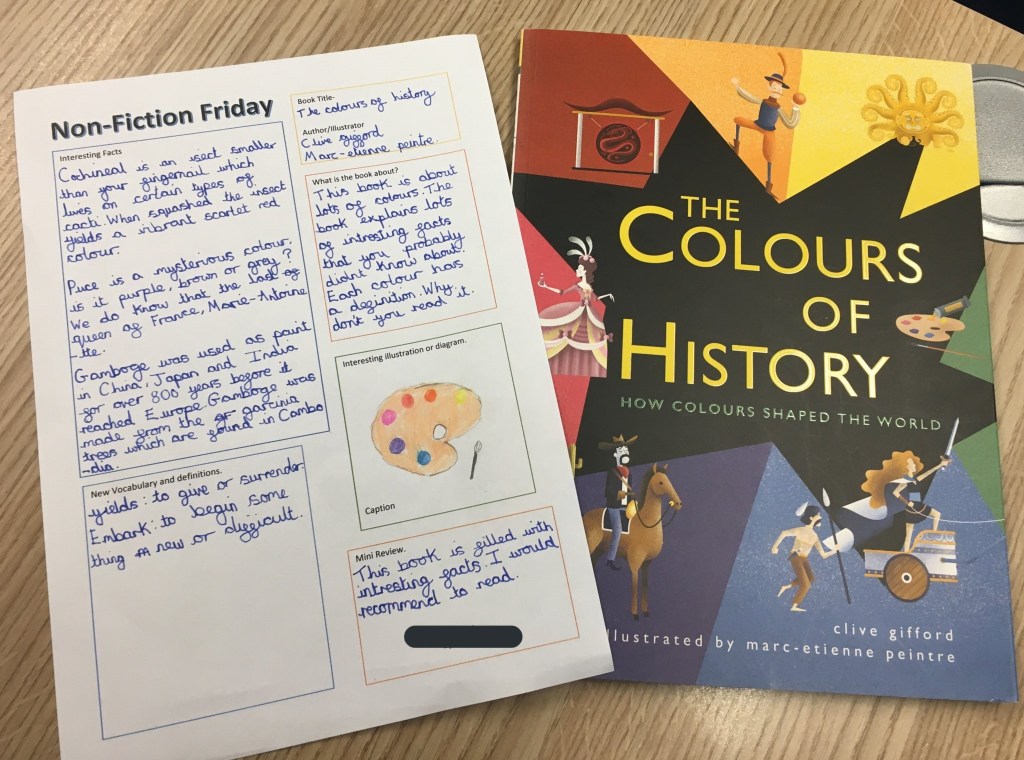 Non-Fiction Friday
Interesting Facts
Cochineal is an isect smaller
than your gingernail which
lives on certain types of
cacti. When squashed the insect
yields a vibrant scarlet red
colour.
Puce is a mysterious colour.
is it purple, brown or grey?
We do know that the last of
queen of France, Marie-Antoine
-tte.
Gamboge was used as paint
in China, Japan and India
for over 800 years before it
reached Europe. Gamboge was
made from the gr garcinia
trees which are found in Cambo
-dia.
New Vocabulary and definitions.
yields: to give or surrender.
Embark: to begin some
thing new or difficult.
Book Title-
The colours of history
Author/Illustrator
Clive gifford
Marc-etienne peintre.
What is the book about?
This book is about
lots of colours. The
book explains lots
of intresting facts
that you probably
didnt know about.
Each colour has
a definition. Why
don't you read it.
Interesting illustration or diagram.
Caption
Mini Review.
This book is filled with
intresting facts. I would
recommend to read.
THE
COLOURS
OF
HISTORY
HOW COLOURS SHAPED THE WORLD
clive gifford
illustrated by marc-etienne peintre